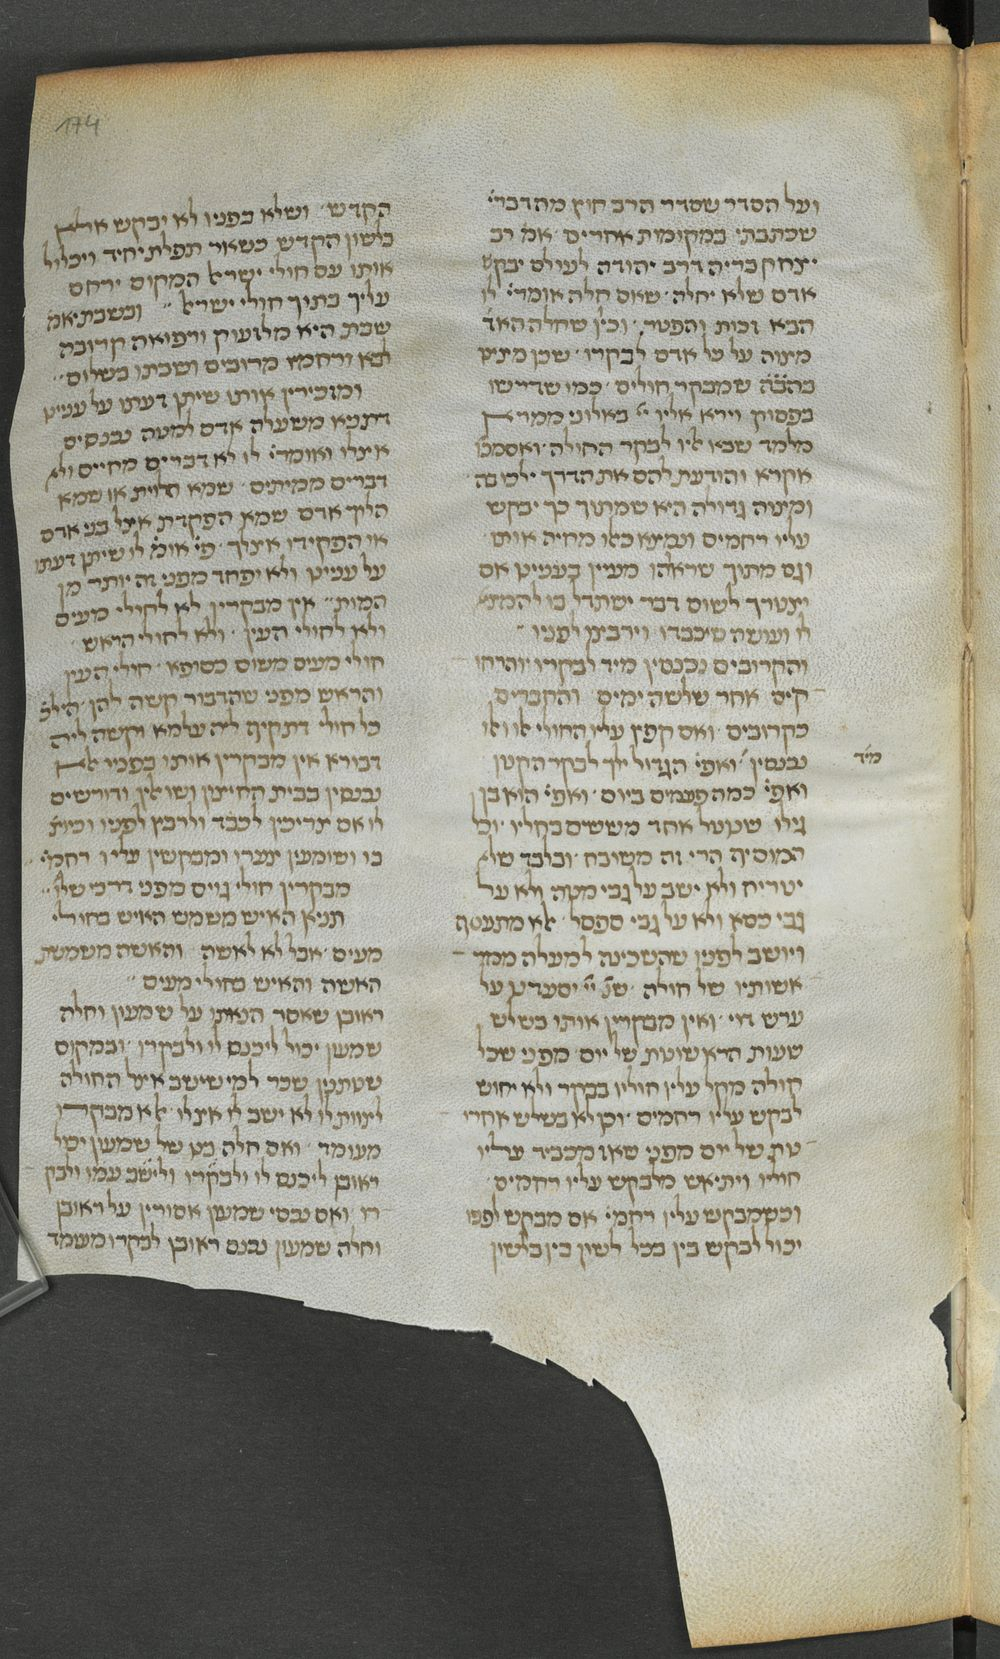 174
ועל הסדר שסדר הרב חוץ מהדברי'
שכתבתי במקומות אחרים ׳ אמ' רב
יצחק בריה דרב יהודה לעולם יבקש
אדם שלא יחלה ׳ שאם חלה אומרי' לו
הבא זכות והפטר ׳ וכיון שחלה האד'
מצוה על כל אדם לבקרו ׳ שכן מצינו
בהב״ה שמבקר חולים ׳ כמו שדרשו
בפסוק וירא אליו יי' באלוני ממרא
מלמד שבא אליו לבקר החולה ׳ ואסמכו
אקרא והודעת להם את הדרך ילכו בה
ומצוה גדולה היא שמתוך כך יבקש
עליו רחמים ונמצא כאלו מחיה אותו
וגם מתוך שרואהו מעיין בעניינו אם
יצטרך לשום דבר ישתדל בו להמצי'
לו ועושה שיכבדו וירבצו לפניו
והקרובים נכנסין מיד לבקרו ׳ והרחו
קים אחר שלשה ימים ׳ והחברים
כקרובים ׳ ואם קפץ עליו החולי אלו ואלו
נכנסין ׳ ואפי' הגדול ילך לבקר הקטן
מיד
ואפי' כמה פעמים ביום ׳ ואפי' הוא בן
גילו שנוטל אחד מששים בחליו ׳ וכל
המוסיף הרי זה משובח ׳ ובלבד שלא
יטריח ולא ישב על גבי מטה ולא על
גבי כסא ולא על גבי ספסל ׳ אלא מתעטף
ויושב לפניו שהשכינה למעלה
אשותיו של חולה ׳ שנ' יי' יסעדנו על
ערש דוי ׳ ואין מבקרין אותו בשלש
שעות הראשונות של יום ׳ מפני שכל
חולה מקל עליו חוליו בבקר ולא יחוש
לבקש עליו רחמים ׳ וכן לא בשלש אחרו
נות של יום מפני שאז מכביד עליו
חוליו ויתיאש מלבקש עליו רחמים
וכשמבקש עליו רחמי' אם מבקש לפניו
יכול לבקש בין בכל לשון בין בלשון
הקדש ׳ ושלא בפניו לא יבקש אלא
בלשון הקדש כשאר תפלת יחיד ויכלול
אותו עם חולי ישראל המקום ירחם
עליך בתוך חולי ישראל ׳׳ ובשבת יאמ'
שבת היא מלזעוק ורפואה קרובה
לבא ורחמיו מרובים ושבתו בשלום ׳׳
ומזכירין אותו שיתן דעתו על עניינו
דתניא משעלה אדם למטה נכנסים
אצלו ואומרי' לו לא דברים מחיים ולא
דברים ממיתים ׳ שמא הלוית או שמא
הלוך אדם שמא הפקדת אצל בני אדם
או הפקידו אצלך ׳ פי' אומ' לו שיתן דעתו
על עניינו ולא יפחד מפני זה יותר מן
המות ׳׳ אין מבקרין לא לחולי מעים
ולא לחולי העין ׳ ולא לחולי הראש ׳
חולי מעים משום כסופא ׳ חולי העין
והראש מפני שהדבור קשה להן ׳ הילכ'
כל חולי דתקיף ליה עלמא וקשה ליה
דבורא אין מבקרין אותו בפניו אלא
נכנסין בבית החיצון ושואלין ודורשים
לו אם צריכין לכבד ולרבץ לפניו וכיוצ'
בו ושומעין צערו ומבקשין עליו רחמי' ׳׳
מבקרין חולי גויים מפני דרכי שלו' ׳׳
תניא האיש משמש האיש בחולי
מעים ׳ אבל לא לאשה ׳ והאשה משמשת
האשה והאיש בחולי מעים ׳׳
ראובן שאסר הנאתו על שמעון וחלה
שמעון יכול ליכנס לו ולבקרו ׳ ובמקום
שנותנין שכר למי שישב אצל החולה
לצוות לו לא ישב לו אצלו ׳ אלא מבקרו
מעומד ׳ ואם חלה בנו של שמעון יכול
ראובן ליכנס לו ולבקרו ולישב עמו ולבק
רו ׳ ואם נכסי שמעון אסורין על ראובן
וחלה שמעון נכנס ראובן לבקרו מעומד